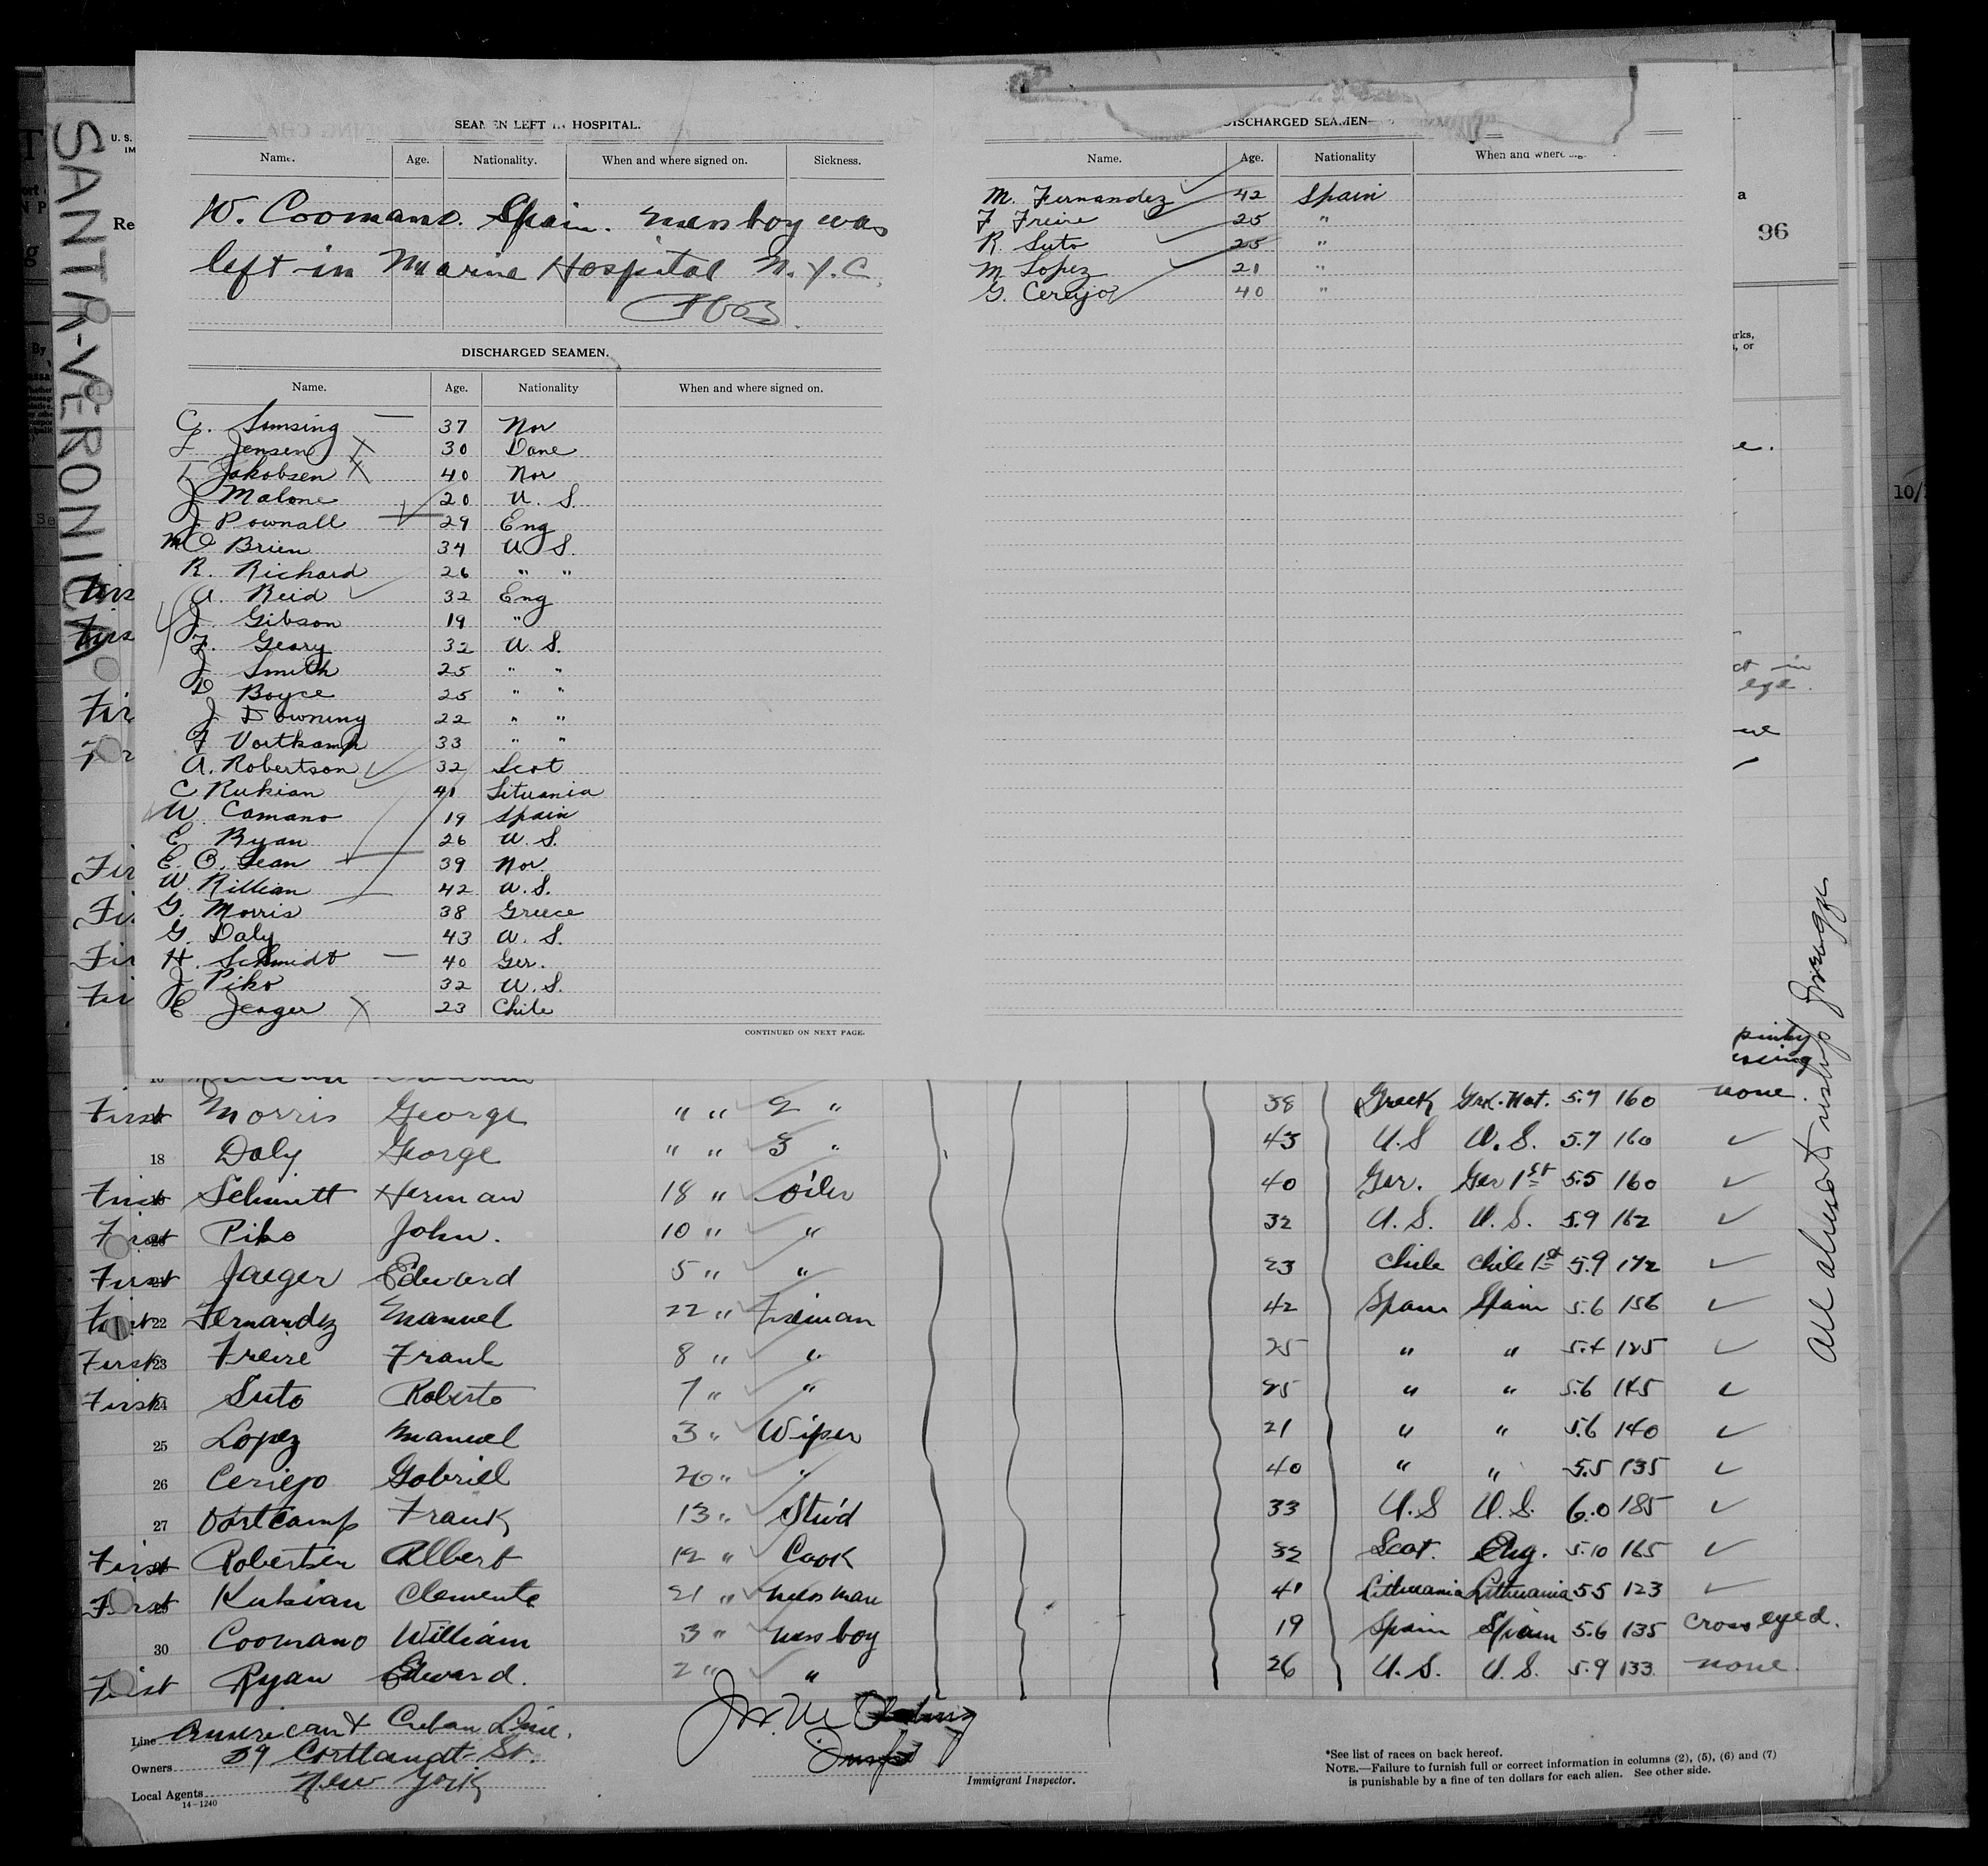 SANTA-VERONICA
U. S.
IM
Re
a
96
10/
SEAMEN LEFT IN HOSPITAL.
Name. Age. Nationality. When and where signed on. Sickness.
W. Coomano. Spain. mess boy was
left in Marine Hospital N.Y.C.
DISCHARGED SEAMEN.
Name. Age. Nationality When and where signed on.
G. Somsing 37 Nor
Jensen 30 Dane
Jakobsen 40 Nor
J Malone 20 U. S.
J Pownall 29 Eng
M O Brien 34 U S.
R. Richard 26 " "
A. Reid 32 Eng
J. Gibson 19 "
F. Geary 32 U. S.
J Smith 25 " "
D Boyce 25 " "
J Downing 22 " "
F Vortkamp 33 " "
A. Robertson 32 Scot
C Rukian 41 Lituania
W Camano 19 Spain
E Ryan 26 U. S.
E. O. Sean 39 Nor.
W. Rillian 42 U. S.
G. Morris 38 Greece
G. Daly 43 U. S.
H. Schmidt 40 Ger.
J Piko 32 U. S.
E Jeager 23 Chile
CONTINUED ON NEXT PAGE.
DISCHARGED SEAMEN
Name. Age. Nationality When and where
M. Fernandez 42 Spain
F Freire 25 "
R. Suto 25 "
M Lopez 21 "
G. Cereijo 40 "
First Morris George " " 2 " 38 Greek Grk. Nat. 5.7 160 none.
18 Daly George " " 3 " 43 U.S U. S. 5.7 160
First Schmitt Herman 18 " Oiler 40 Ger. Ger 1st 5.5 160
First Piko John. 10 " " 32 U. S. U. S. 5.9 162
First Jaeger Edward 5 " " 23 Chile Chile 1st 5.9 172
First 22 Fernandez Manuel 22 " Fireman 42 Spain Spain 5.6 156
First 23 Freire Frank 8 " " 25 " " 5.4 125
First 24 Suto Roberto 7 " " 25 " " 5.6 145
25 Lopez Manuel 3 " Wiper 21 " " 5.6 140
26 Ceriejo Gabriel 20 " " 40 " " 5.5 135
27 Vortcamp Frank 13 " Stw'd 33 U.S U. S. 6.0 185
First Robertson Albert 12 " Cook 32 Scot. Eng. 5.10 165
First Kukian Clemente 21 " mess man 41 Lithuania Lithuania 5 5 123
30 Coomano William 3 " mess boy 19 Spain Spain 5.6 135 cross eyed.
First Ryan Edward. 2 " " 26 U. S. U. S. 5.9 133 none.
Line American & Cuban Line.
Owners 39 Cortlandt St.
Local Agents New York
14-1240
Immigrant Inspector.
*See list of races on back hereof.
NOTE.—Failure to furnish full or correct information in columns (2), (5), (6) and (7)
is punishable by a fine of ten dollars for each alien. See other side.